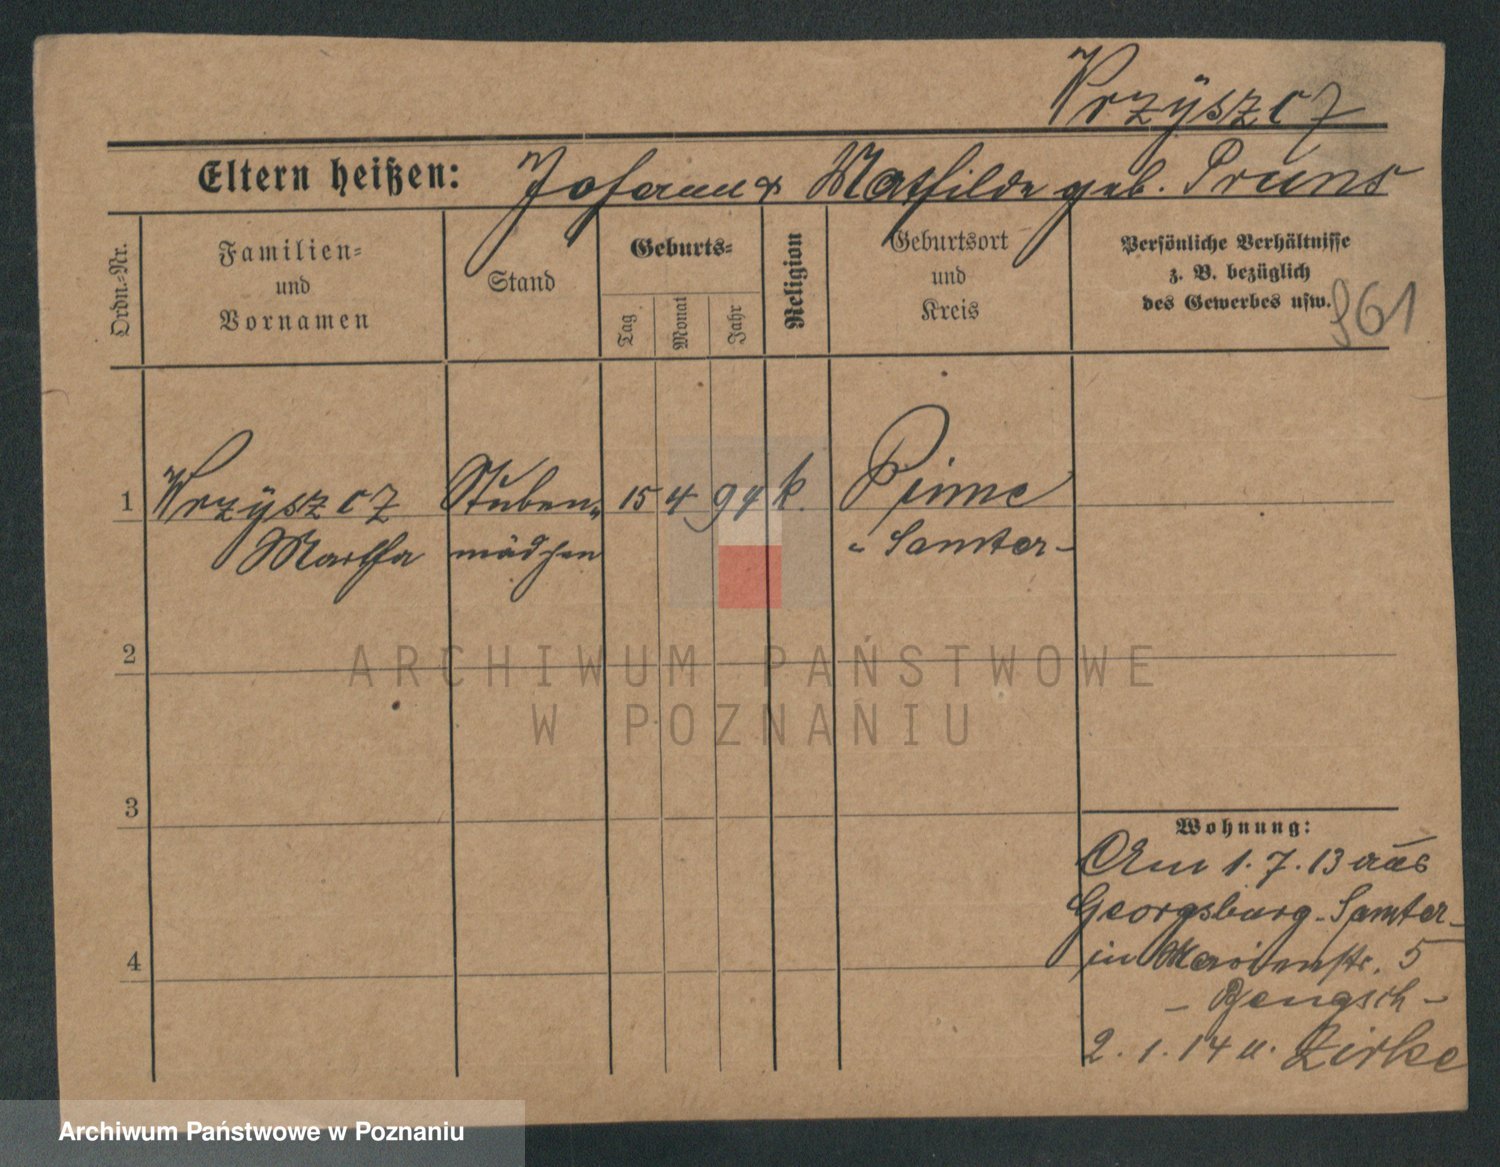 Krzÿszcz
Eltern heißen: Johann & Mathilde geb. Pruns
Ordn.-Nr.
Familien-
und
Vornamen
Stand
Geburts-
Tag.
Monat
Jahr
Religion
Geburtsort
und
Kreis
Persönliche Verhältnisse
z. B. bezüglich
des Gewerbes usw.
961
1 Krzÿszcz Stuben- 15 4 94 k. Pinne
Martha mädchen - Samter -
2
3
4
Wohnung:
Am 1.7.13 aus
Georgsburg - Samter -
in Marienstr. 5
- Bengsch -
2.1.14 n. Zirke
ARCHIWUM PAŃSTWOWE
W POZNANIU
Archiwum Państwowe w Poznaniu